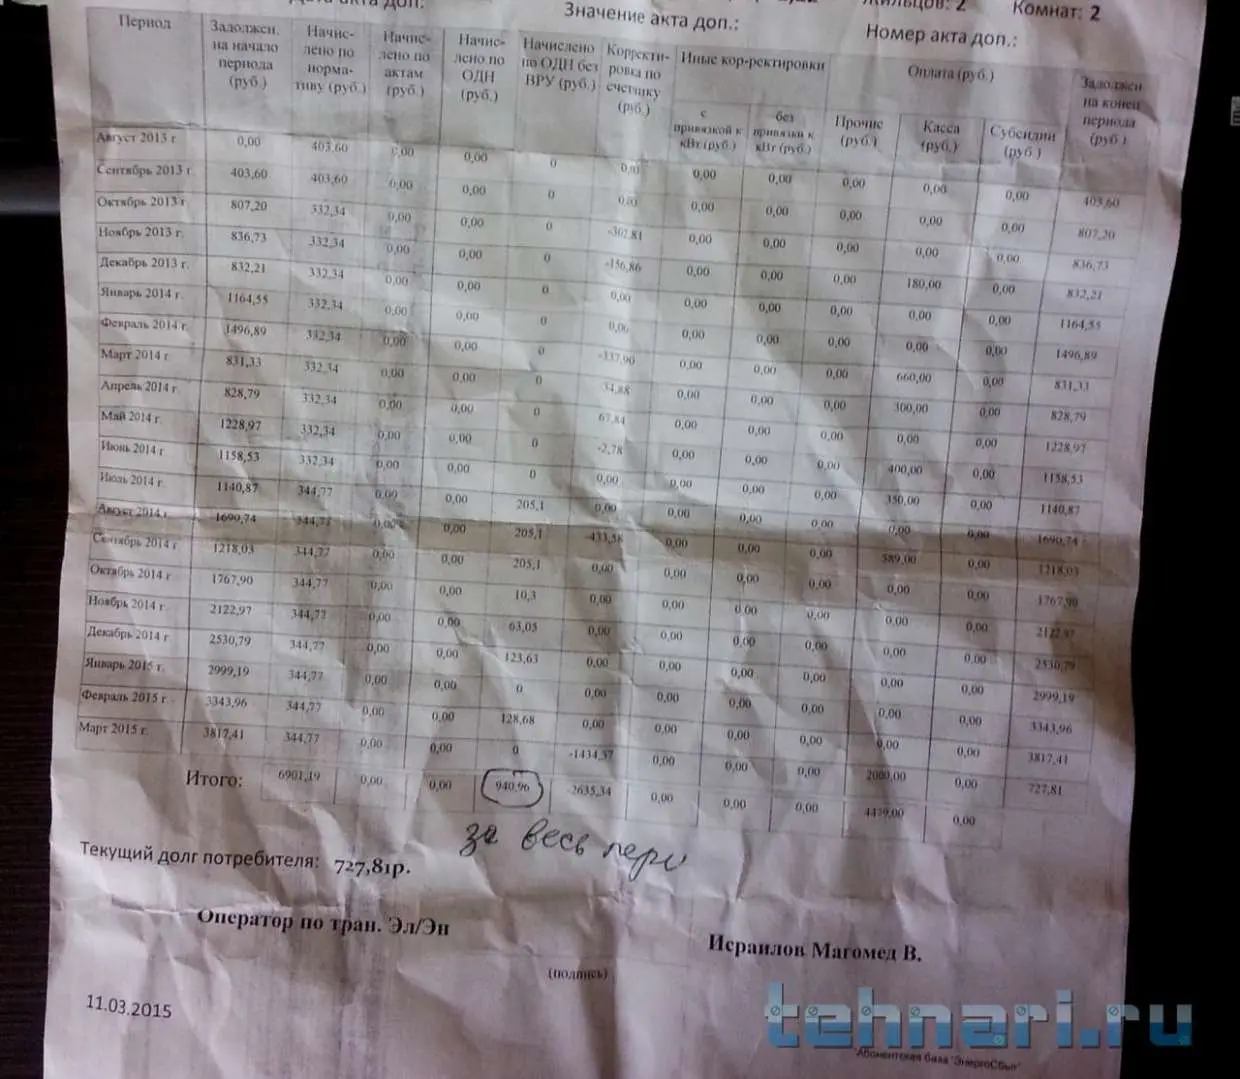 Значение акта доп.:
Жильцов: 2
Комнат: 2
Номер акта доп.:
Период
Задолжен. на начало периода (руб.)
Начис-лено по норма-тиву (руб.)
Начис-лено по актам (руб.)
Начис-лено по ОДН (руб.)
Начислено по ОДН без ВРУ (руб.)
Корректи-ровка по счетчику (руб.)
Иные кор-ректировки
с привязкой к кВт (руб.)
без привязки к кВт (руб.)
Оплата (руб.)
Прочие (руб.)
Касса (руб.)
Субсидии (руб.)
Задолжен на конец периода (руб.)
Август 2013 г. 0,00 403,60 0,00 0,00 0 0,00 0,00 0,00 0,00 0,00 0,00 403,60
Сентябрь 2013 г. 403,60 403,60 0,00 0,00 0 0,00 0,00 0,00 0,00 0,00 0,00 807,20
Октябрь 2013 г. 807,20 332,34 0,00 0,00 0 -302,81 0,00 0,00 0,00 0,00 0,00 836,73
Ноябрь 2013 г. 836,73 332,34 0,00 0,00 0 -156,86 0,00 0,00 0,00 180,00 0,00 832,21
Декабрь 2013 г. 832,21 332,34 0,00 0,00 0 0,00 0,00 0,00 0,00 0,00 0,00 1164,55
Январь 2014 г. 1164,55 332,34 0,00 0,00 0 0,00 0,00 0,00 0,00 0,00 0,00 1496,89
Февраль 2014 г. 1496,89 332,34 0,00 0,00 0 -337,90 0,00 0,00 0,00 660,00 0,00 831,33
Март 2014 г. 831,33 332,34 0,00 0,00 0 -34,88 0,00 0,00 0,00 300,00 0,00 828,79
Апрель 2014 г. 828,79 332,34 0,00 0,00 0 67,84 0,00 0,00 0,00 0,00 0,00 1228,97
Май 2014 г. 1228,97 332,34 0,00 0,00 0 -2,78 0,00 0,00 0,00 400,00 0,00 1158,53
Июнь 2014 г. 1158,53 332,34 0,00 0,00 0 0,00 0,00 0,00 0,00 350,00 0,00 1140,87
Июль 2014 г. 1140,87 344,77 0,00 0,00 205,1 0,00 0,00 0,00 0,00 0,00 0,00 1690,74
Август 2014 г. 1690,74 344,77 0,00 0,00 205,1 -433,58 0,00 0,00 0,00 589,00 0,00 1218,03
Сентябрь 2014 г. 1218,03 344,77 0,00 0,00 205,1 0,00 0,00 0,00 0,00 0,00 0,00 1767,90
Октябрь 2014 г. 1767,90 344,77 0,00 0,00 10,3 0,00 0,00 0,00 0,00 0,00 0,00 2122,97
Ноябрь 2014 г. 2122,97 344,77 0,00 0,00 63,05 0,00 0,00 0,00 0,00 0,00 0,00 2530,79
Декабрь 2014 г. 2530,79 344,77 0,00 0,00 123,63 0,00 0,00 0,00 0,00 0,00 0,00 2999,19
Январь 2015 г. 2999,19 344,77 0,00 0,00 0 0,00 0,00 0,00 0,00 0,00 0,00 3343,96
Февраль 2015 г. 3343,96 344,77 0,00 0,00 128,68 0,00 0,00 0,00 0,00 0,00 0,00 3817,41
Март 2015 г. 3817,41 344,77 0,00 0,00 0 -1434,37 0,00 0,00 0,00 2000,00 0,00 727,81
Итого: 6901,19 0,00 0,00 940,96 -2635,34 0,00 0,00 0,00 4479,00 0,00
за весь пери
Текущий долг потребителя: 727,81р.
Оператор по тран. Эл/Эн
Исраилов Магомед В.
(подпись)
11.03.2015
tehnari.ru
"Абонентская база "ЭнергоСбыт"